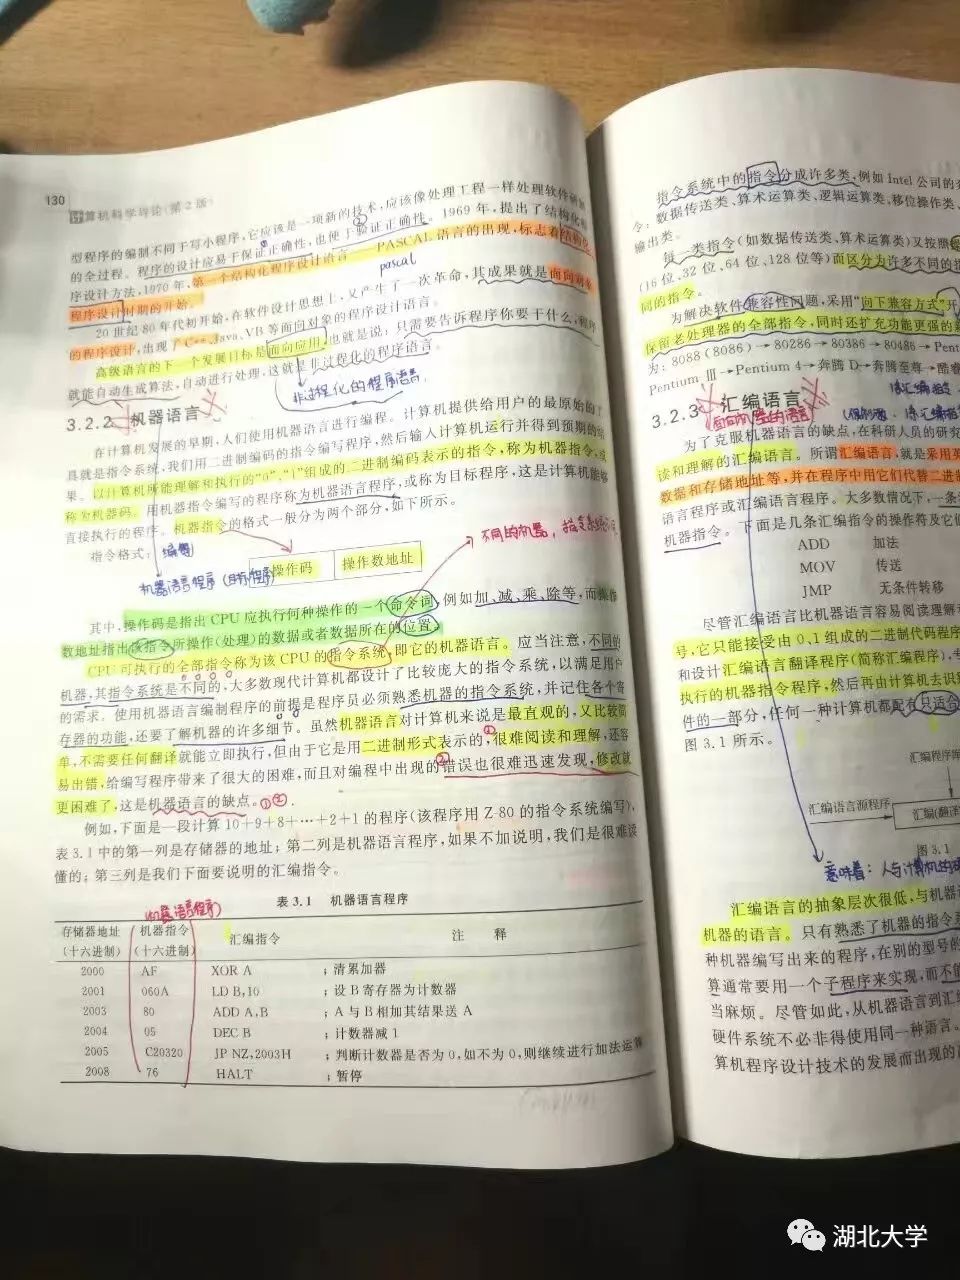 130
计算机科学导论(第2版)
型程序的编制不同于写小程序,它应该是一项新的技术,应该像处理工程一样处理软件研制
的全过程。程序的设计应易于保证正确性,也便于验证正确性。1969年,提出了结构化程
序设计方法,1970年,第一个结构化程序设计语言——PASCAL语言的出现,标志着结构化
pascal
程序设计时期的开始。
20世纪80年代初开始,在软件设计思想上,又产生了一次革命,其成果就是面向对象
的程序设计,出现了C++、Java、VB等面向对象的程序设计语言。
高级语言的下一个发展目标是面向应用,也就是说:只需要告诉程序你要干什么,程序
就能自动生成算法,自动进行处理,这就是非过程化的程序语言。
非过程化的程序语言
3.2.2 机器语言
在计算机发展的早期,人们使用机器语言进行编程。计算机提供给用户的最原始的工
具就是指令系统,我们用二进制编码的指令编写程序,然后输入计算机运行并得到预期的结
果。以计算机所能理解和执行的“0”、“1”组成的二进制编码表示的指令,称为机器指令,或
称为机器码。用机器指令编写的程序称为机器语言程序,或称为目标程序,这是计算机能够
直接执行的程序。机器指令的格式一般分为两个部分,如下所示。
指令格式:
不同的机器,指令系统
机器语言程序(目标程序)
操作码 操作数地址
其中,操作码是指出CPU应执行何种操作的一个命令词,例如加、减、乘、除等,而操作
数地址指出该指令所操作(处理)的数据或者数据所在的位置。
CPU可执行的全部指令称为该CPU的指令系统,即它的机器语言。应当注意,不同的
机器,其指令系统是不同的,大多数现代计算机都设计了比较庞大的指令系统,以满足用户
的需求。使用机器语言编制程序的前提是程序员必须熟悉机器的指令系统,并记住各个寄
存器的功能,还要了解机器的许多细节。虽然机器语言对计算机来说是最直观的,又比较简
单,不需要任何翻译就能立即执行,但由于它是用二进制形式表示的,很难阅读和理解,还容
易出错,给编写程序带来了很大的困难,而且对编程中出现的错误也很难迅速发现,修改就
更困难了,这是机器语言的缺点。①②.
例如,下面是一段计算10+9+8+…+2+1的程序(该程序用Z-80的指令系统编写),
表3.1中的第一列是存储器的地址;第二列是机器语言程序,如果不加说明,我们是很难读
懂的;第三列是我们下面要说明的汇编指令。
表3.1 机器语言程序
(机器语言程序)
存储器地址(十六进制) 机器指令(十六进制) 汇编指令 注 释
2000 AF XOR A ;清累加器
2001 060A LD B,10 ;设B寄存器为计数器
2003 80 ADD A,B ;A与B相加其结果送A
2004 05 DEC B ;计数器减1
2005 C20320 JP NZ,2003H ;判断计数器是否为0,如不为0,则继续进行加法运算
2008 76 HALT ;暂停
指令系统中的指令分成许多类,例如Intel公司的
令:数据传送类、算术运算类、逻辑运算类、移位操作类、
输出类。
每一类指令(如数据传送类、算术运算类)又按照
(16位、32位、64位、128位等)而区分为许多不同的指
同的指令。
为解决软件兼容性问题,采用“向下兼容方式”开
保留老处理器的全部指令,同时还扩充功能更强的
为:8088(8086)→80286→80386→80486→Pent
Pentium Ⅲ→Pentium 4→奔腾D→奔腾至尊→酷睿
3.2.3 汇编语言
面向机器的语言
为了克服机器语言的缺点,在科研人员的研究
读和理解的汇编语言。所谓汇编语言,就是采用英
数据和存储地址等,并在程序中用它们代替二进制
语言程序或汇编语言程序。大多数情况下,一条
机器指令。下面是几条汇编指令的操作符及它
ADD 加法
MOV 传送
JMP 无条件转移
尽管汇编语言比机器语言容易阅读理解
号,它只能接受由0、1组成的二进制代码程序
和设计汇编语言翻译程序(简称汇编程序),专
执行的机器指令程序,然后再由计算机去识别
件的一部分,任何一种计算机都配有只适合
图3.1所示。
汇编程序
汇编语言源程序
汇编(翻译
图3.1
意味着:人与计算机的
汇编语言的抽象层次很低,与机器语
机器的语言。只有熟悉了机器的指令系
种机器编写出来的程序,在别的型号的
算通常要用一个子程序来实现,而不能
当麻烦。尽管如此,从机器语言到汇编
硬件系统不必非得使用同一种语言。
算机程序设计技术的发展而出现的
湖北大学